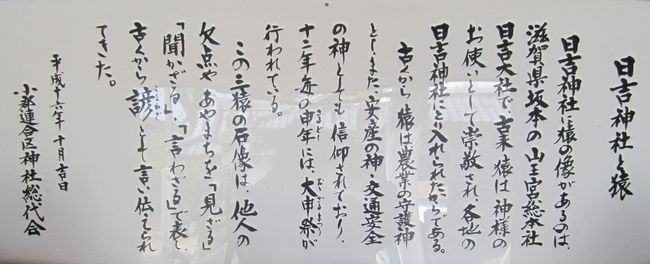 日吉神社と猿
日吉神社に猿の像があるのは、
滋賀県坂本の山王宮総本社
日吉大社で古来猿は神様の
お使いとして崇敬され、各地の
日吉神社にとり入れられたからである。
古くから猿は農業の守護神
とし、また、安産の神・交通安全
の神としても信仰されており、
十二年毎の申年には、大申祭が
行われている。
この三猿の石像は、他人の
欠点やあやまちを「見ざる」
「聞かざる」、「言わざる」で表し
古くから諺として言い伝えられ
てきた。
平成十六年十月吉日
小部連合区神社総代会